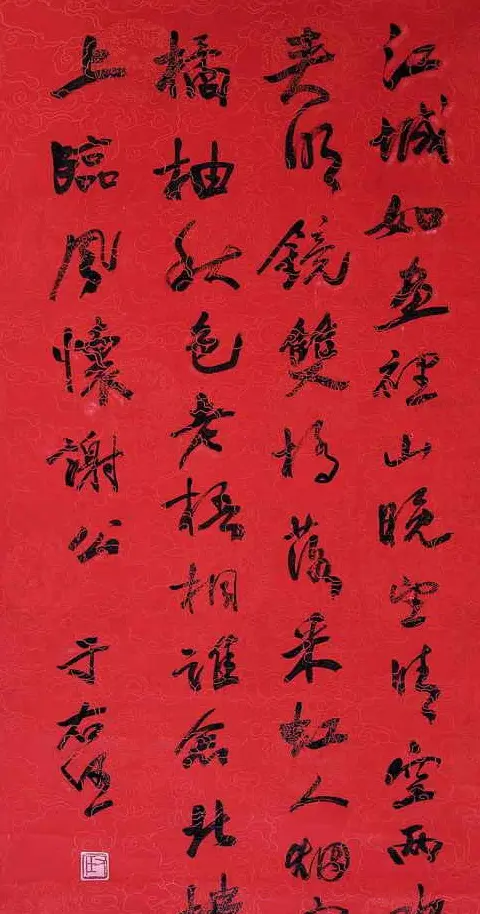 江城如畫裡山晚望晴空兩
夾明鏡雙橋落采虹人烟
橘柚秋色老梧桐誰念北
上臨風懷謝公
于右任